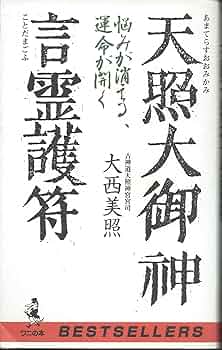 あまてらすおおみかみ
天照大御神
古神道大照神宮宮司
大西美照
悩みが消える、
運命が開く
言霊護符
ことだまごふ
ワニの本
BESTSELLERS